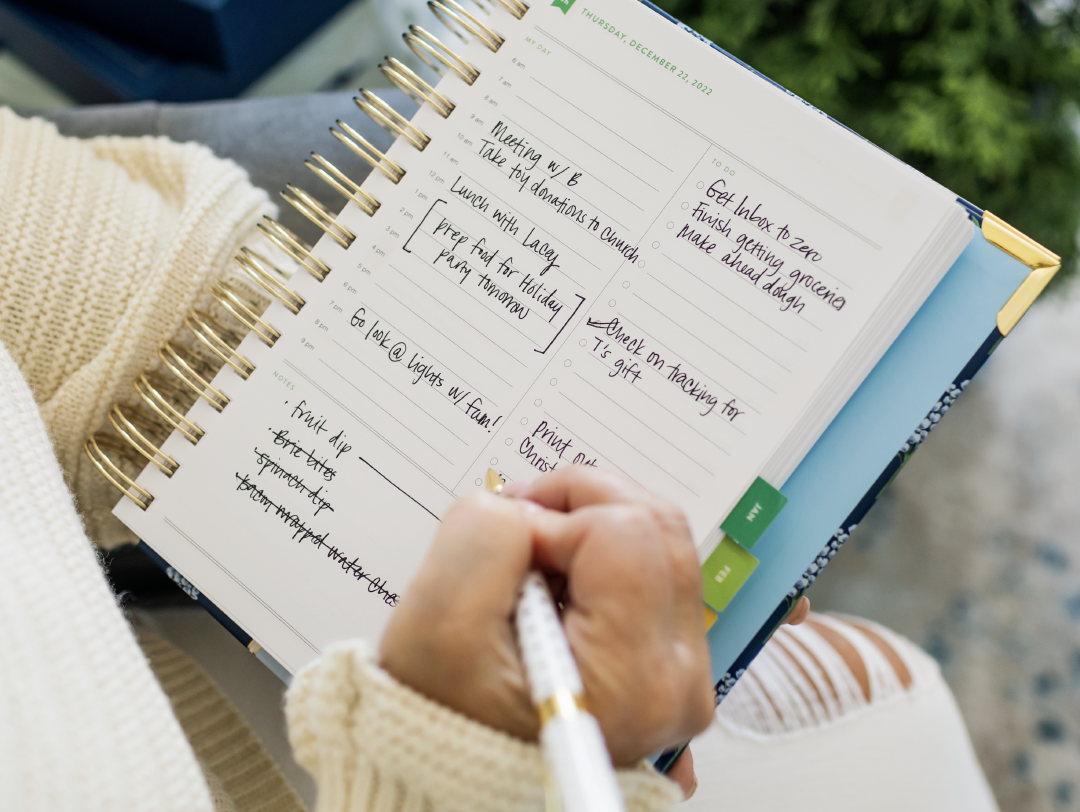 THURSDAY, DECEMBER 22, 2022
MY DAY
6 am
7 am
8 am
9 am
Meeting w/ B
10 am
Take toy donations to church
11 am
12 pm
Lunch with Lacey
1 pm
2 pm
prep food for Holiday
3 pm
party tomorrow
4 pm
5 pm
6 pm
7 pm
Go look @ lights w/ fam!
8 pm
9 pm
NOTES
· fruit dip
· Brie bites
spinach dip
bacon wrapped water ches
TO DO
Get Inbox to zero
Finish getting groceries
Make ahead dough
Check on tracking for
T's gift
Print out
Christ
JAN
FEB